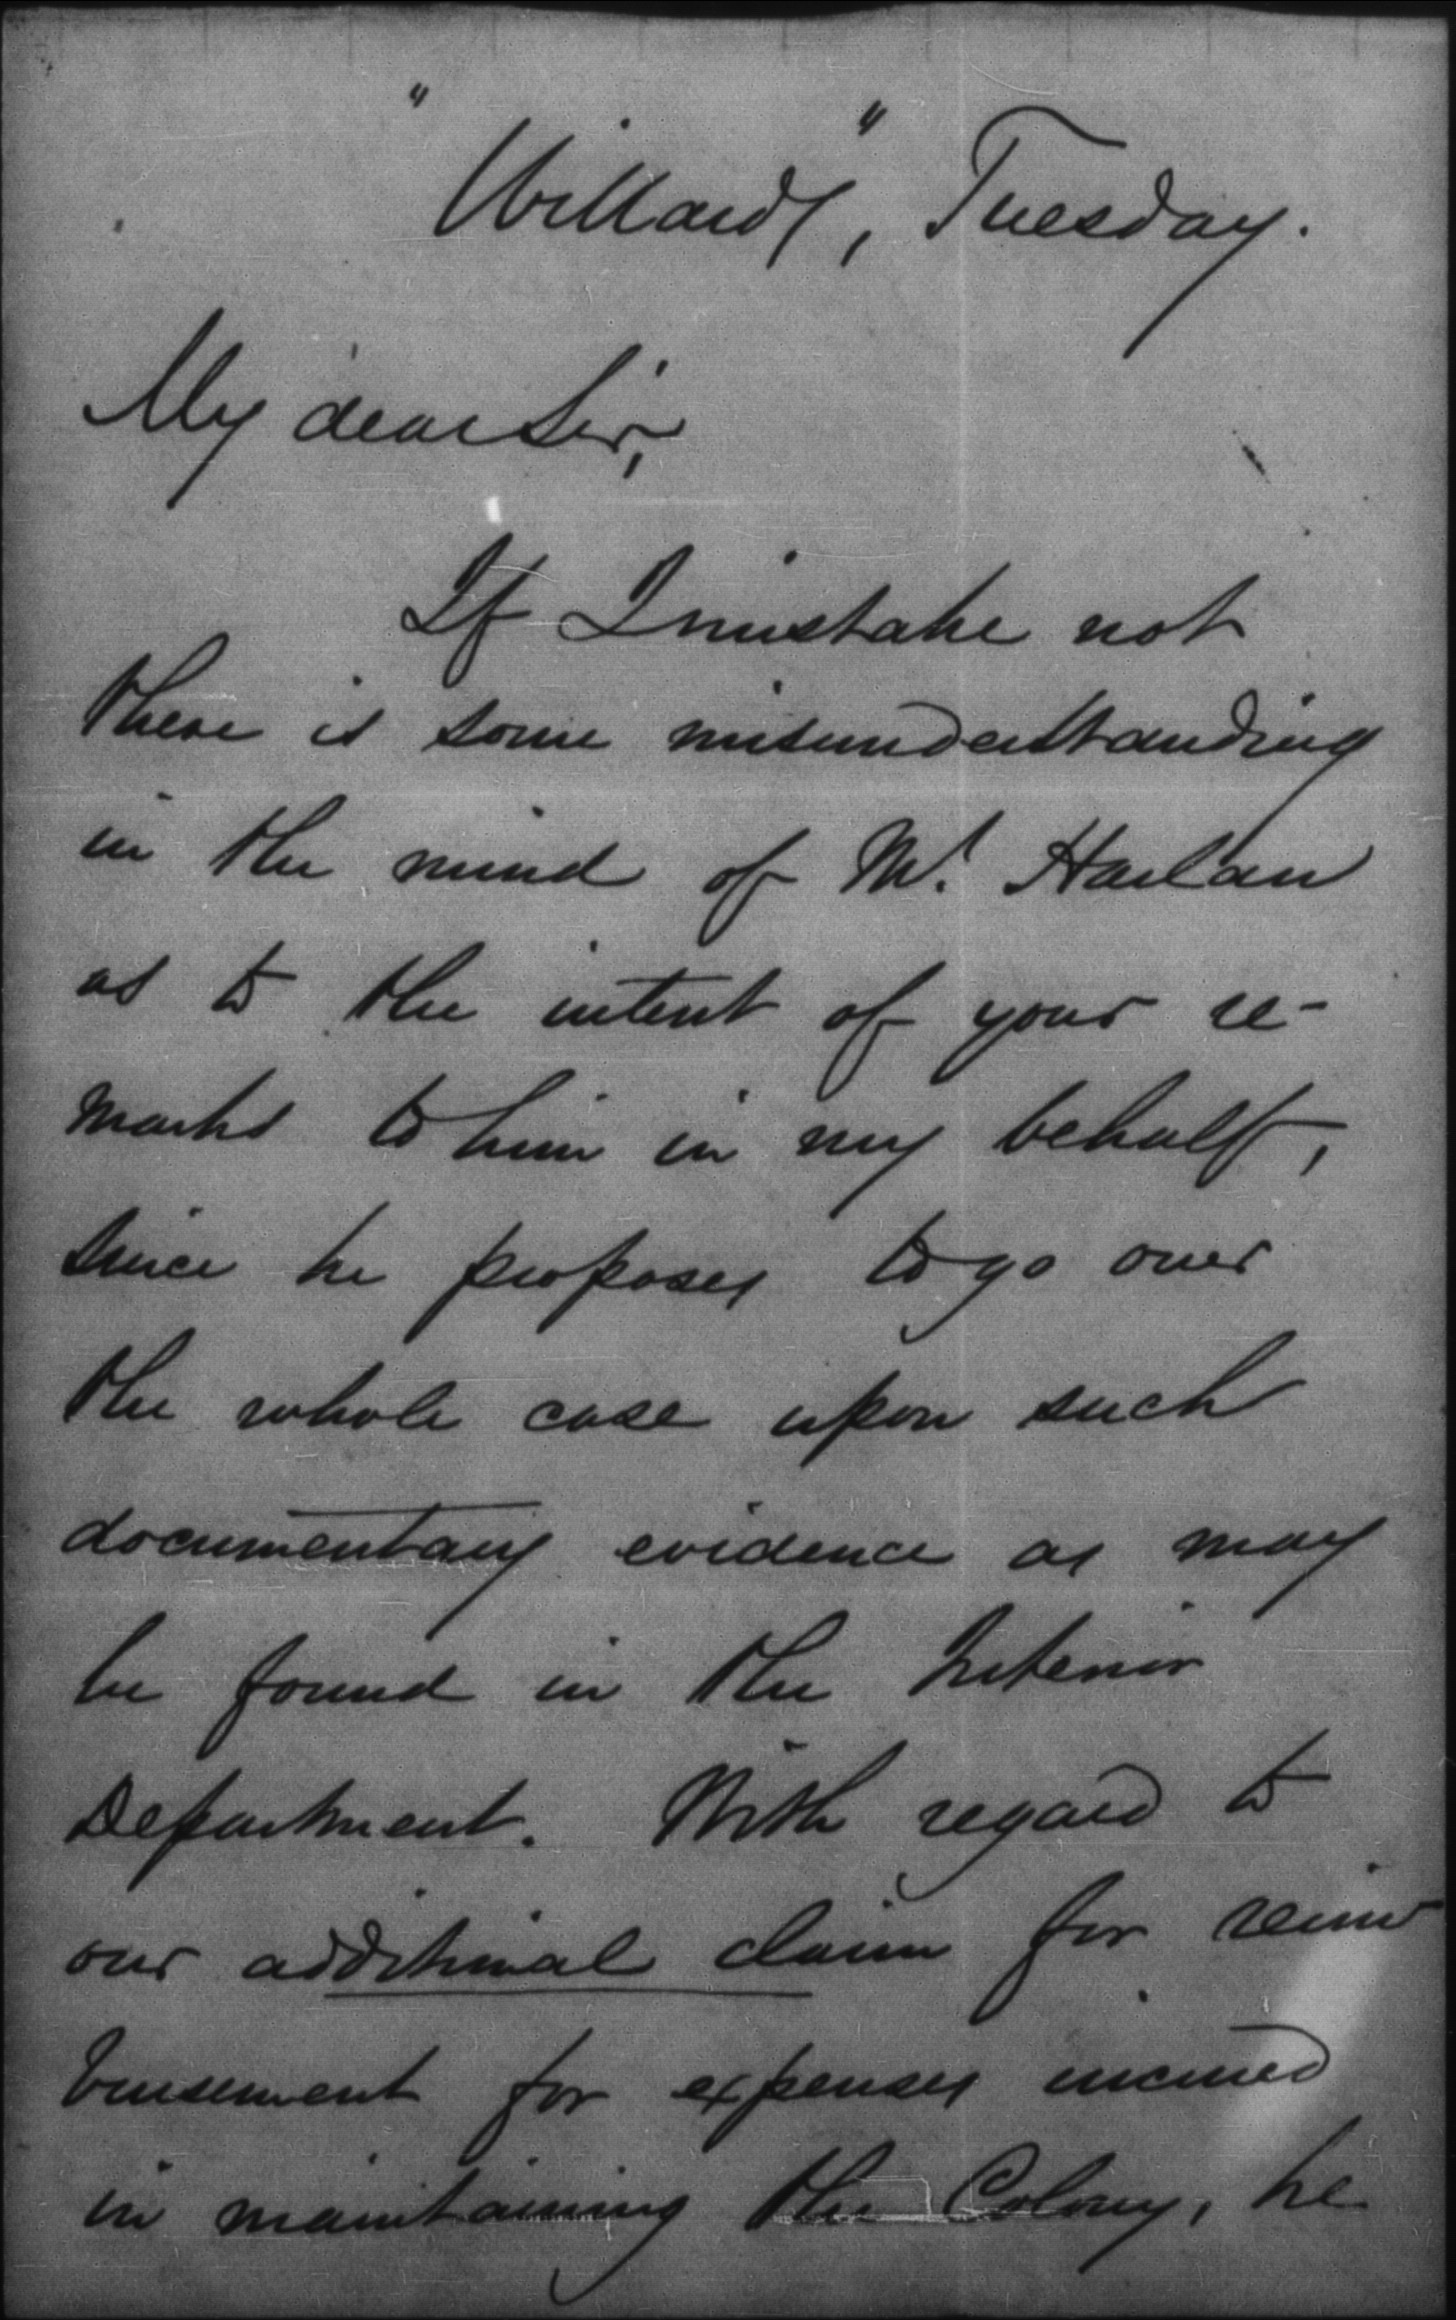 "Willards", Tuesday.
My dear Sir,
If I mistake not
there is some misunderstanding
in the mind of Mr. Harlan
as to the intent of your re-
marks to him in my behalf,
since he proposes to go over
the whole case upon such
documentary evidence as may
be found in the Interior
Department. With regard to
our additional claim for reim
bursement for expenses incurred
in maintaining the Colony, he